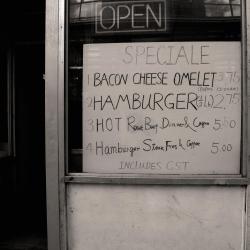 OPEN
SPECIALE
1 BACON CHEESE OMELET 3.75
2 HAMBURGER 2.75
3 HOT Roast Beef Dinner & Coffee 5.50
4 Hamburger Steak Fries & Coffee 5.00
INCLUDES GST